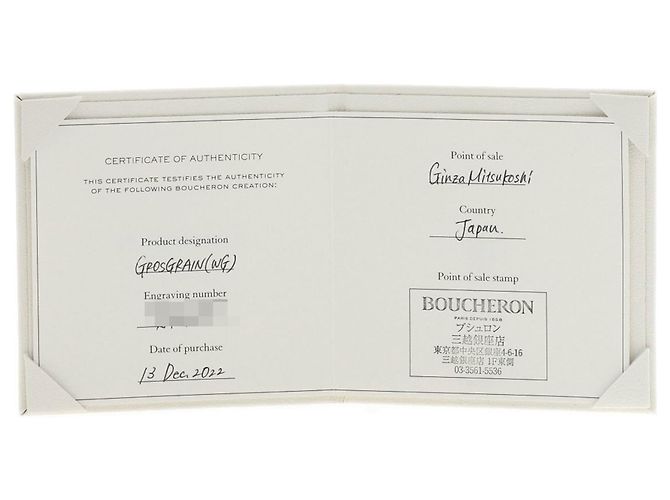 CERTIFICATE OF AUTHENTICITY
THIS CERTIFICATE TESTIFIES THE AUTHENTICITY
OF THE FOLLOWING BOUCHERON CREATION:
Product designation
GROSGRAIN (WG)
Engraving number
Date of purchase
13 Dec. 2022
Point of sale
Ginza Mitsukoshi
Country
Japan.
Point of sale stamp
BOUCHERON
PARIS DEPUIS 1858
ブシュロン
三越銀座店
東京都中央区銀座4-6-16
三越銀座店 1F東側
03-3561-5536